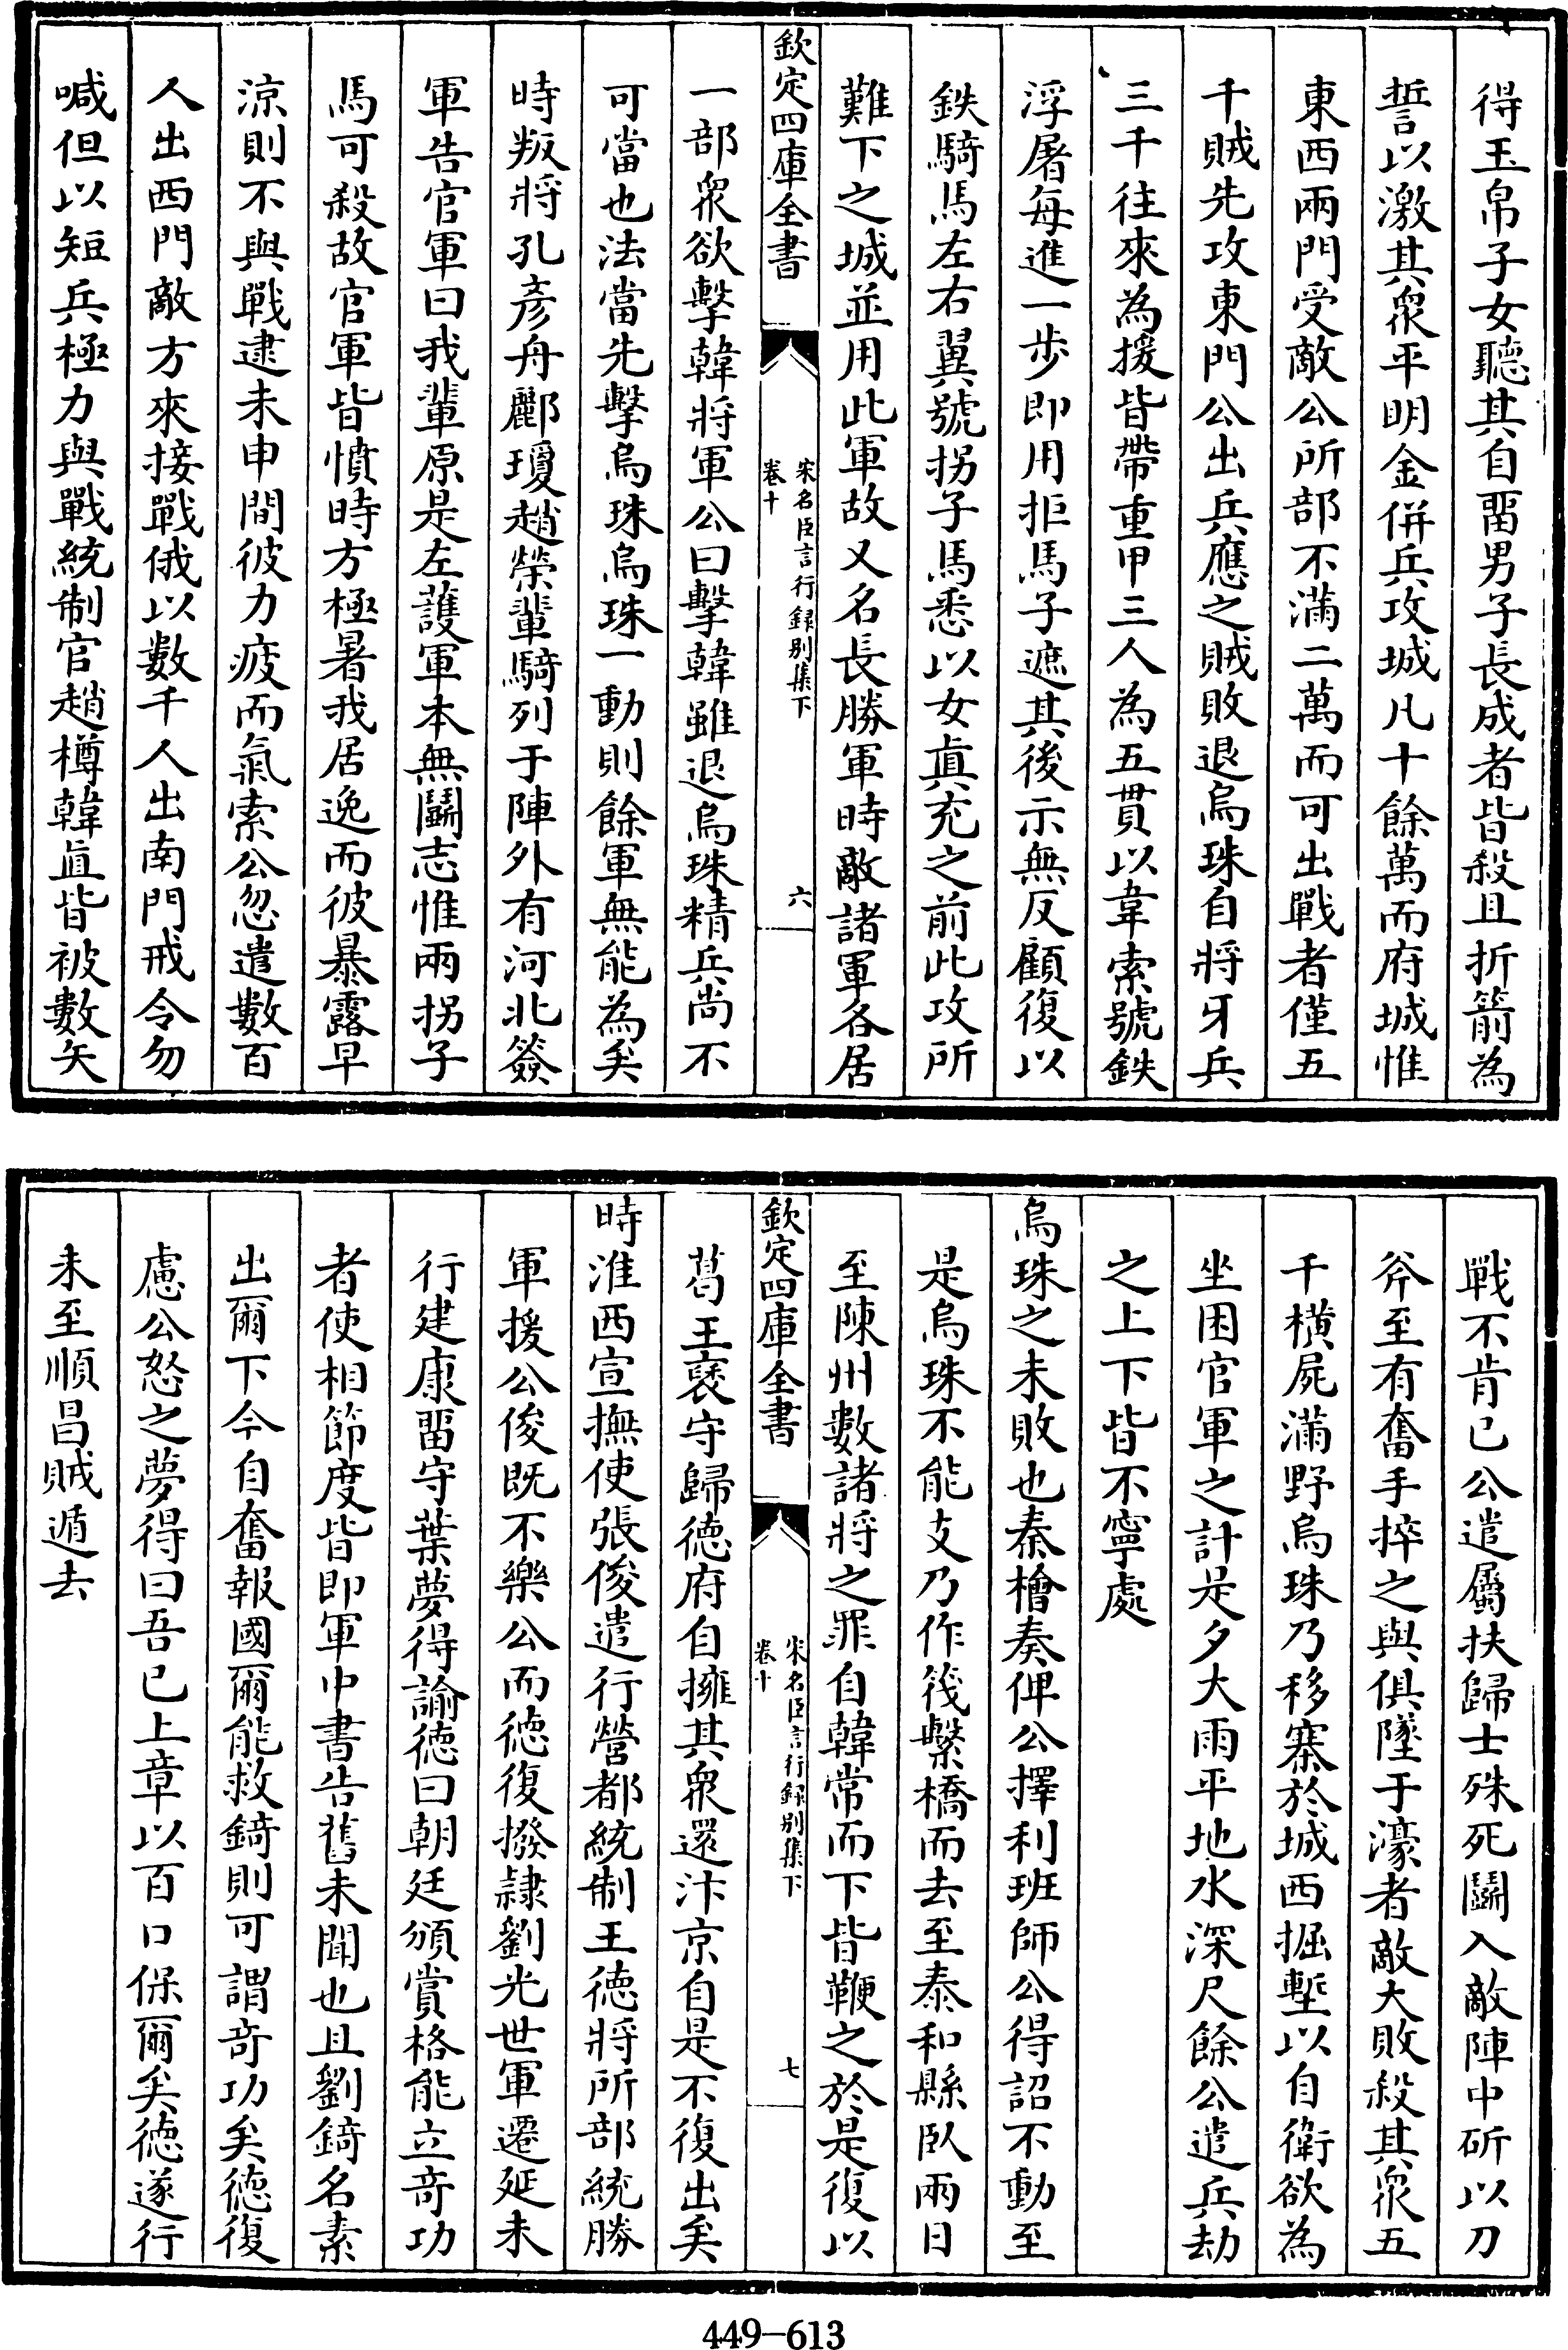 得玉帛子女聽其自留男子長成者皆殺且折箭為
誓以激其衆平明金併兵攻城凡十餘萬而府城惟
東西兩門受敵公所部不滿二萬而可出戰者僅五
千賊先攻東門公出兵應之賊敗退烏珠自將牙兵
三千往來為援皆帶重甲三人為五貫以韋索號鉄
浮屠每進一步即用拒馬子遮其後示無反顧復以
鉄騎馬左右翼號拐子馬悉以女真充之前此攻所
難下之城並用此軍故又名長勝軍時敵諸軍各居
欽定四庫全書
宋名臣言行録別集下
卷十
六
一部衆欲擊韓將軍公曰擊韓雖退烏珠精兵尚不
可當也法當先擊烏珠烏珠一動則餘軍無能為矣
時叛將孔彦舟酈瓊趙榮輩騎列于陣外有河北簽
軍告官軍曰我輩原是左護軍本無鬭志惟兩拐子
馬可殺故官軍皆憤時方極暑我居逸而彼暴露早
涼則不與戰逮未申間彼力疲而氣索公忽遣數百
人出西門敵方來接戰俄以數千人出南門戒令勿
喊但以短兵極力與戰統制官趙樽韓直皆被數矢
戰不肯已公遣屬扶歸士殊死鬭入敵陣中斫以刀
斧至有奮手捽之與俱墜于濠者敵大敗殺其衆五
千横屍滿野烏珠乃移寨於城西掘塹以自衛欲為
坐困官軍之計是夕大雨平地水深尺餘公遣兵劫
之上下皆不寧處
烏珠之未敗也秦檜奏俾公擇利班師公得詔不動至
是烏珠不能支乃作筏繫橋而去至泰和縣臥兩日
至陳州數諸將之罪自韓常而下皆鞭之於是復以
欽定四庫全書
宋名臣言行録別集下
卷十
七
葛王褎守歸徳府自擁其衆還汴京自是不復出矣
時淮西宣撫使張俊遣行營都統制王徳將所部統勝
軍援公俊既不樂公而徳復撥隷劉光世軍遷延未
行建康留守葉夢得諭徳曰朝廷頒賞格能立奇功
者使相節度皆即軍中書告舊未聞也且劉錡名素
出爾下今自奮報國爾能救錡則可謂奇功矣徳復
慮公怒之夢得曰吾已上章以百口保爾矣徳遂行
未至順昌賊遁去
449-613